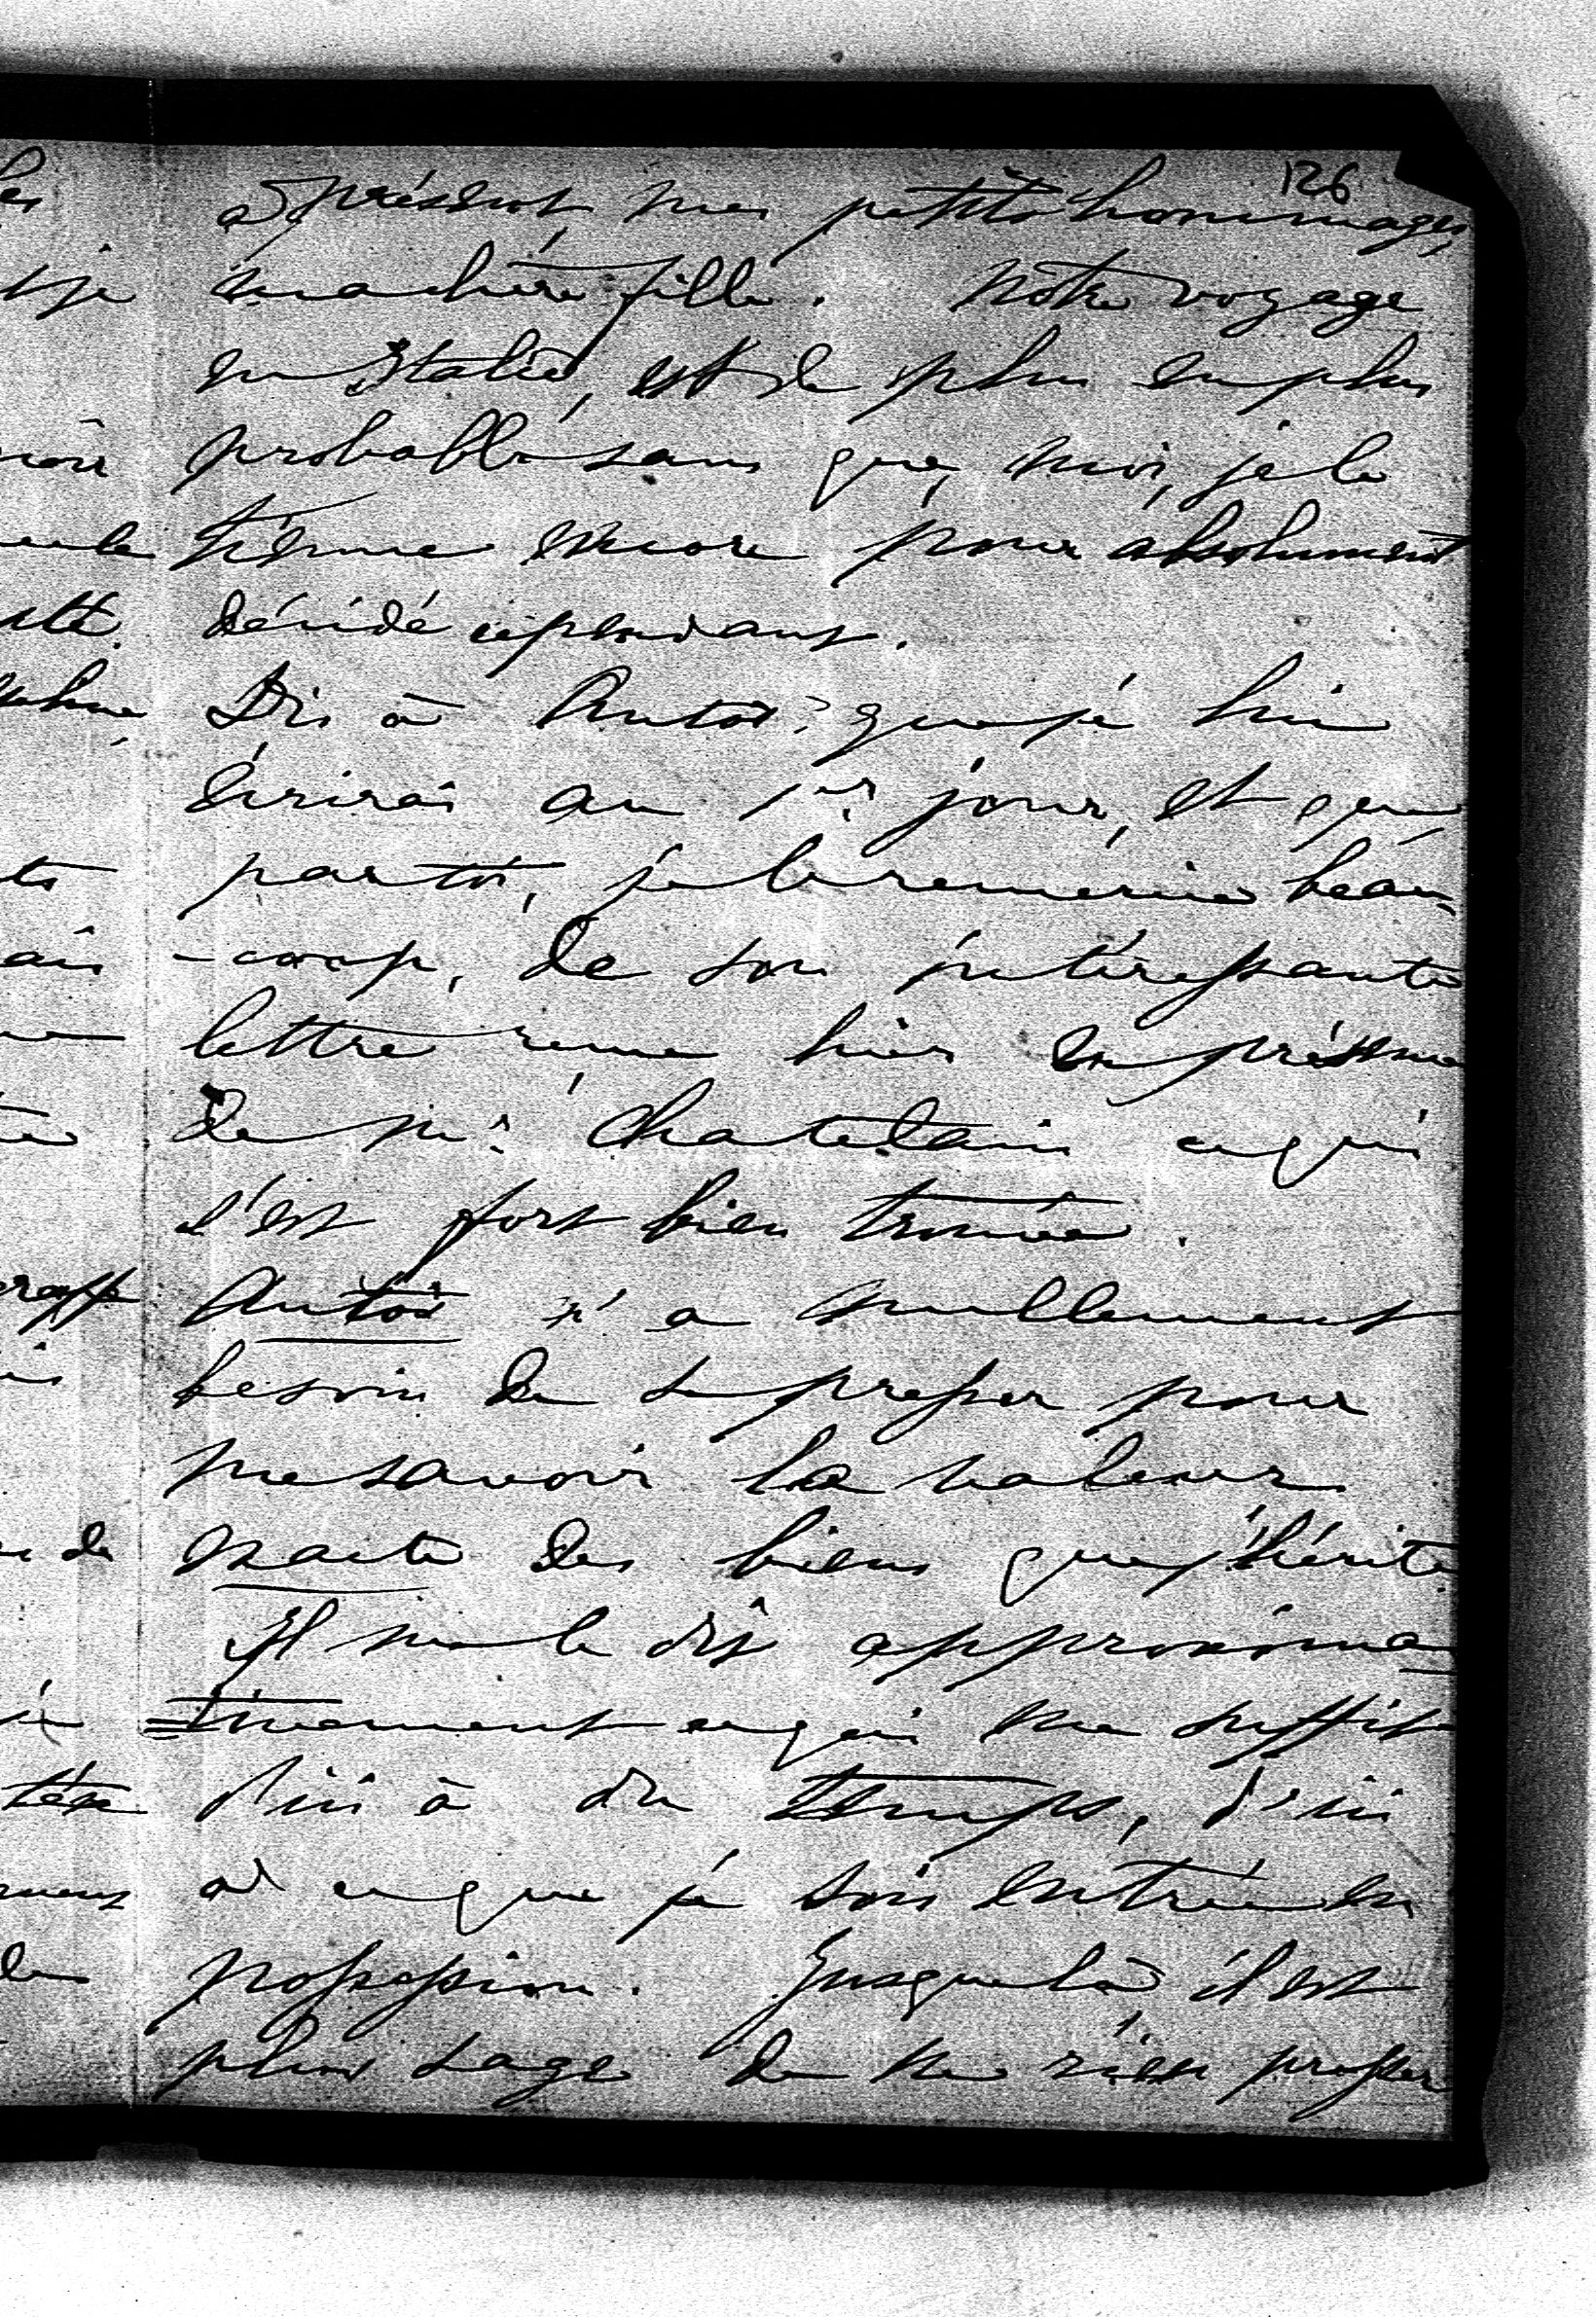 126
à présent, mes petits hommages,
ma chère fille. Notre voyage
en Italie, est de plus en plus
probable sans que, moi, je le
tienne encore pour absolument
décidé cependant.
Dis à Antor: que je lui
écrirai au 1er jour, et que
par toi, je le remercie beau-
-coup, de son intéressante
lettre reçue hier en présence
de Mr. Chatelain ce qui
s'est fort bien trouvé.
Antoi n'a nullement
besoin de se presser pour
me savoir la valeur
exacte des biens que j'hérite
Il me le dit approxima-
=tivement ce qui me suffit
d'ici à du temps, d'ici
à ce que je sois entrée en
possession. Jusque là il est
plus sage de ne rien presser